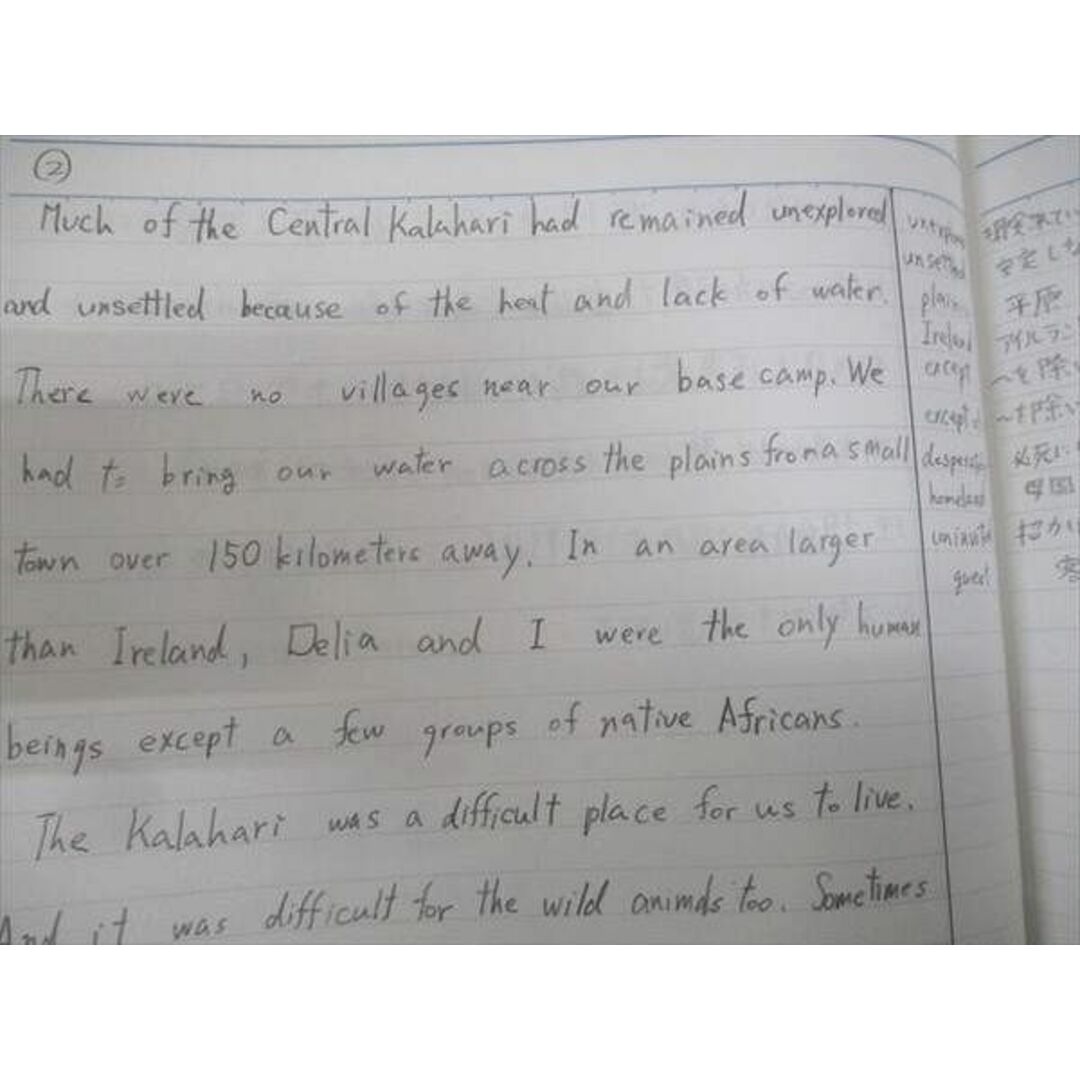 ②
Much of the Central Kalahari had remained unexplored
and unsettled because of the heat and lack of water.
There were no villages near our base camp. We
had to bring our water across the plains from a small
town over 150 kilometers away. In an area larger
than Ireland, Delia and I were the only human
beings except a few groups of native Africans.
The Kalahari was a difficult place for us to live.
And it was difficult for the wild animals too. Sometimes
unsettled
plain 平原
Ireland アイルラン
except ～を除い
except ～を除い
必死に
母国
guest